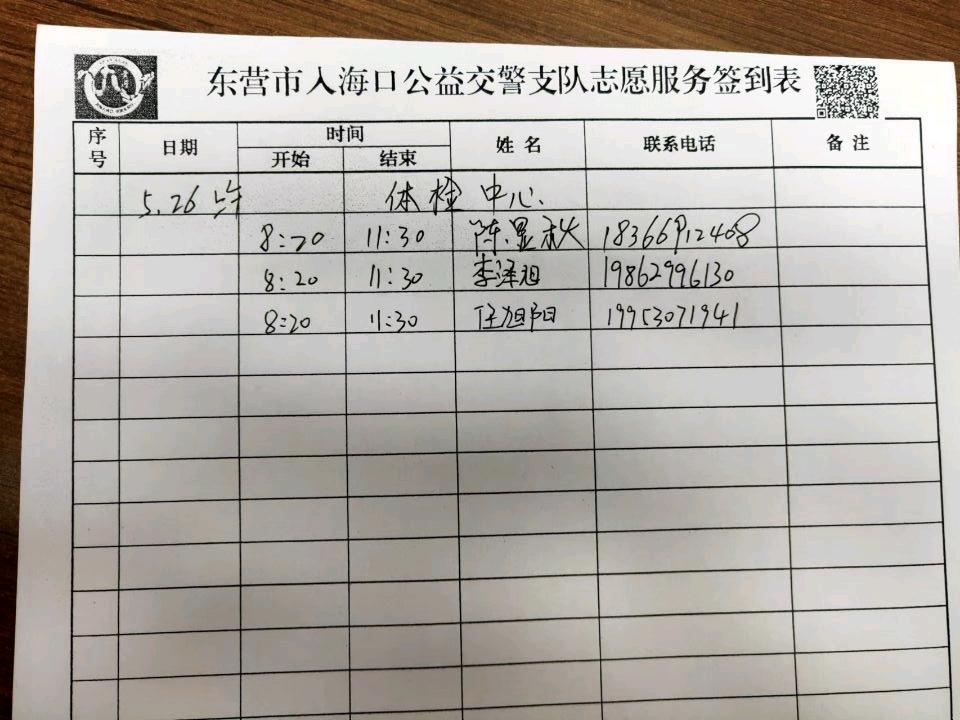 东营市入海口公益交警支队志愿服务签到表
序号 日期 时间 姓名 联系电话 备注
开始 结束
5.26 体检中心
8:20 11:30 陈显秋 18366912408
8:20 11:30 李泽旭 19862996130
8:20 11:30 任旭阳 19953071941